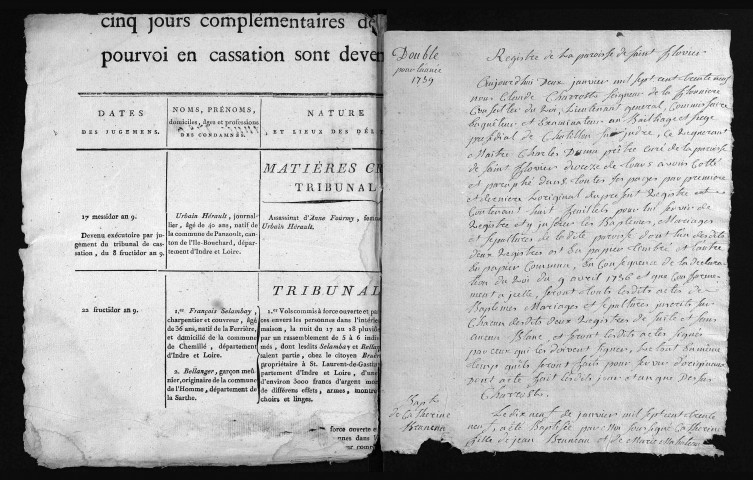 cinq jours complémentaires de
pourvoi en cassation sont deven
DATES
DES JUGEMENS.
NOMS, PRÉNOMS,
domiciles, âges et professions
DES CONDAMNÉS.
NATURE
ET LIEUX DES DÉL
MATIÈRES CR
TRIBUNAL
17 messidor an 9.
Devenu exécutoire par ju-
gement du tribunal de cas-
sation, du 8 fructidor an 9.
Urbain Hérault, journal-
lier, âgé de 40 ans, natif de
la commune de Panzoult, can-
ton de l'Ile-Bouchard, dépar-
tement d'Indre et Loire.
Assassinat d'Anne Fourny, femm
Urbain Hérault.
TRIBUNAL
22 fructidor an 9.
1.er François Selambay,
charpentier et couvreur, âgé
de 36 ans, natif de la Ferrière,
et domicilié de la commune
de Chemillé, département
d'Indre et Loire.
2. Bellanger, garçon meû-
nier, originaire de la commune
de l'Homme, département de
la Sarthe.
1.er Vols commis à force ouverte et par
ces envers les personnes dans l'intérie
maison, la nuit du 17 au 18 pluviô
par un rassemblement de 5 à 6 indiv
mds, dont lesdits Selambay et Bellang
saient partie, chez le citoyen
propriétaire à St. Laurent-de-Gastin
partement d'Indre et Loire, d'une
d'environ 3000 francs d'argent monn
de différens effets, armes, montre
choirs et linges.
force ouverte et
nnes dans l'
ur comp
Double
pour l'année
1739
Registre de la paroisse de Saint Flovier
Aujourdhui Deux janvier mil sept cent trente neuf
nous Claude Charrotte Seigneur de la
Conseiller du Roi, Lieutenant general, Commissaire
Enquêteur et Examinateur au Bailliage et siege
presidial de Chatillon sur jndre, Ce Requerant
Maitre Charles prêtre curé de la paroisse
de Saint Flovier dioceze de tours avons Cotté
et paraphé dans toutes ses pages par premiere
et derniere L'original du present Registre
Contenant huit feuillets pour lui servir de
Registre et y jnserer les Baptemes, Mariages
et sepultures de ladite paroisse dont lun desdits
deux Registres est En papier timbré et l'autre
En papier Commun, En Consequence de la declara
tion du Roi du 9 avril 1736 et que Conforme
ment a jcelle, seront tous lesdits actes de
Baptemes Mariages et sepultures jnscrits sur
Chacun desdits deux Registres de suite et sans
aucun Blanc, et seront lesdits actes signés
par ceux qui les doivent signer, sur tout En même
temps qu'ils seront faits pour servir d'originaux
dont acte fait lesdits jour et an que dessus
Charrotte.
Bapt.
de Catherine
Bruneau
Le dix neuf de janvier mil sept cent trente
neuf, a été Baptisée par Moi soussigné Catherine
fille de jean Bruneau et de Marie